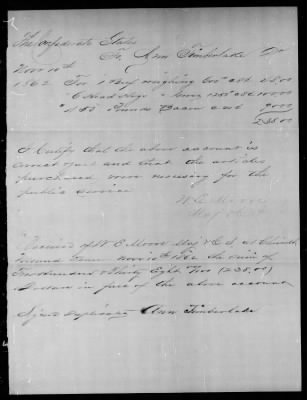 The Confederate States
To Ann Timberlake Dr
Novr 10th
1862 For 1 Beef weighing 600 @ 8¢ 48.00
" 6 Head Hogs " 1250 @ 8¢ 100.00
" 450 Pounds Bacon 90.00
238.00
I Certify that the above account is
correct and that the articles
purchased were necessary for the
public service
W. E. Moore
Maj
Received of W E Moore Maj & C. S. at
Tenn Novr 10th 1862 the sum of
Two Hundred & Thirty Eight (238.00)
Dollars in full of the above account
Signed Duplicates Ann Timberlake